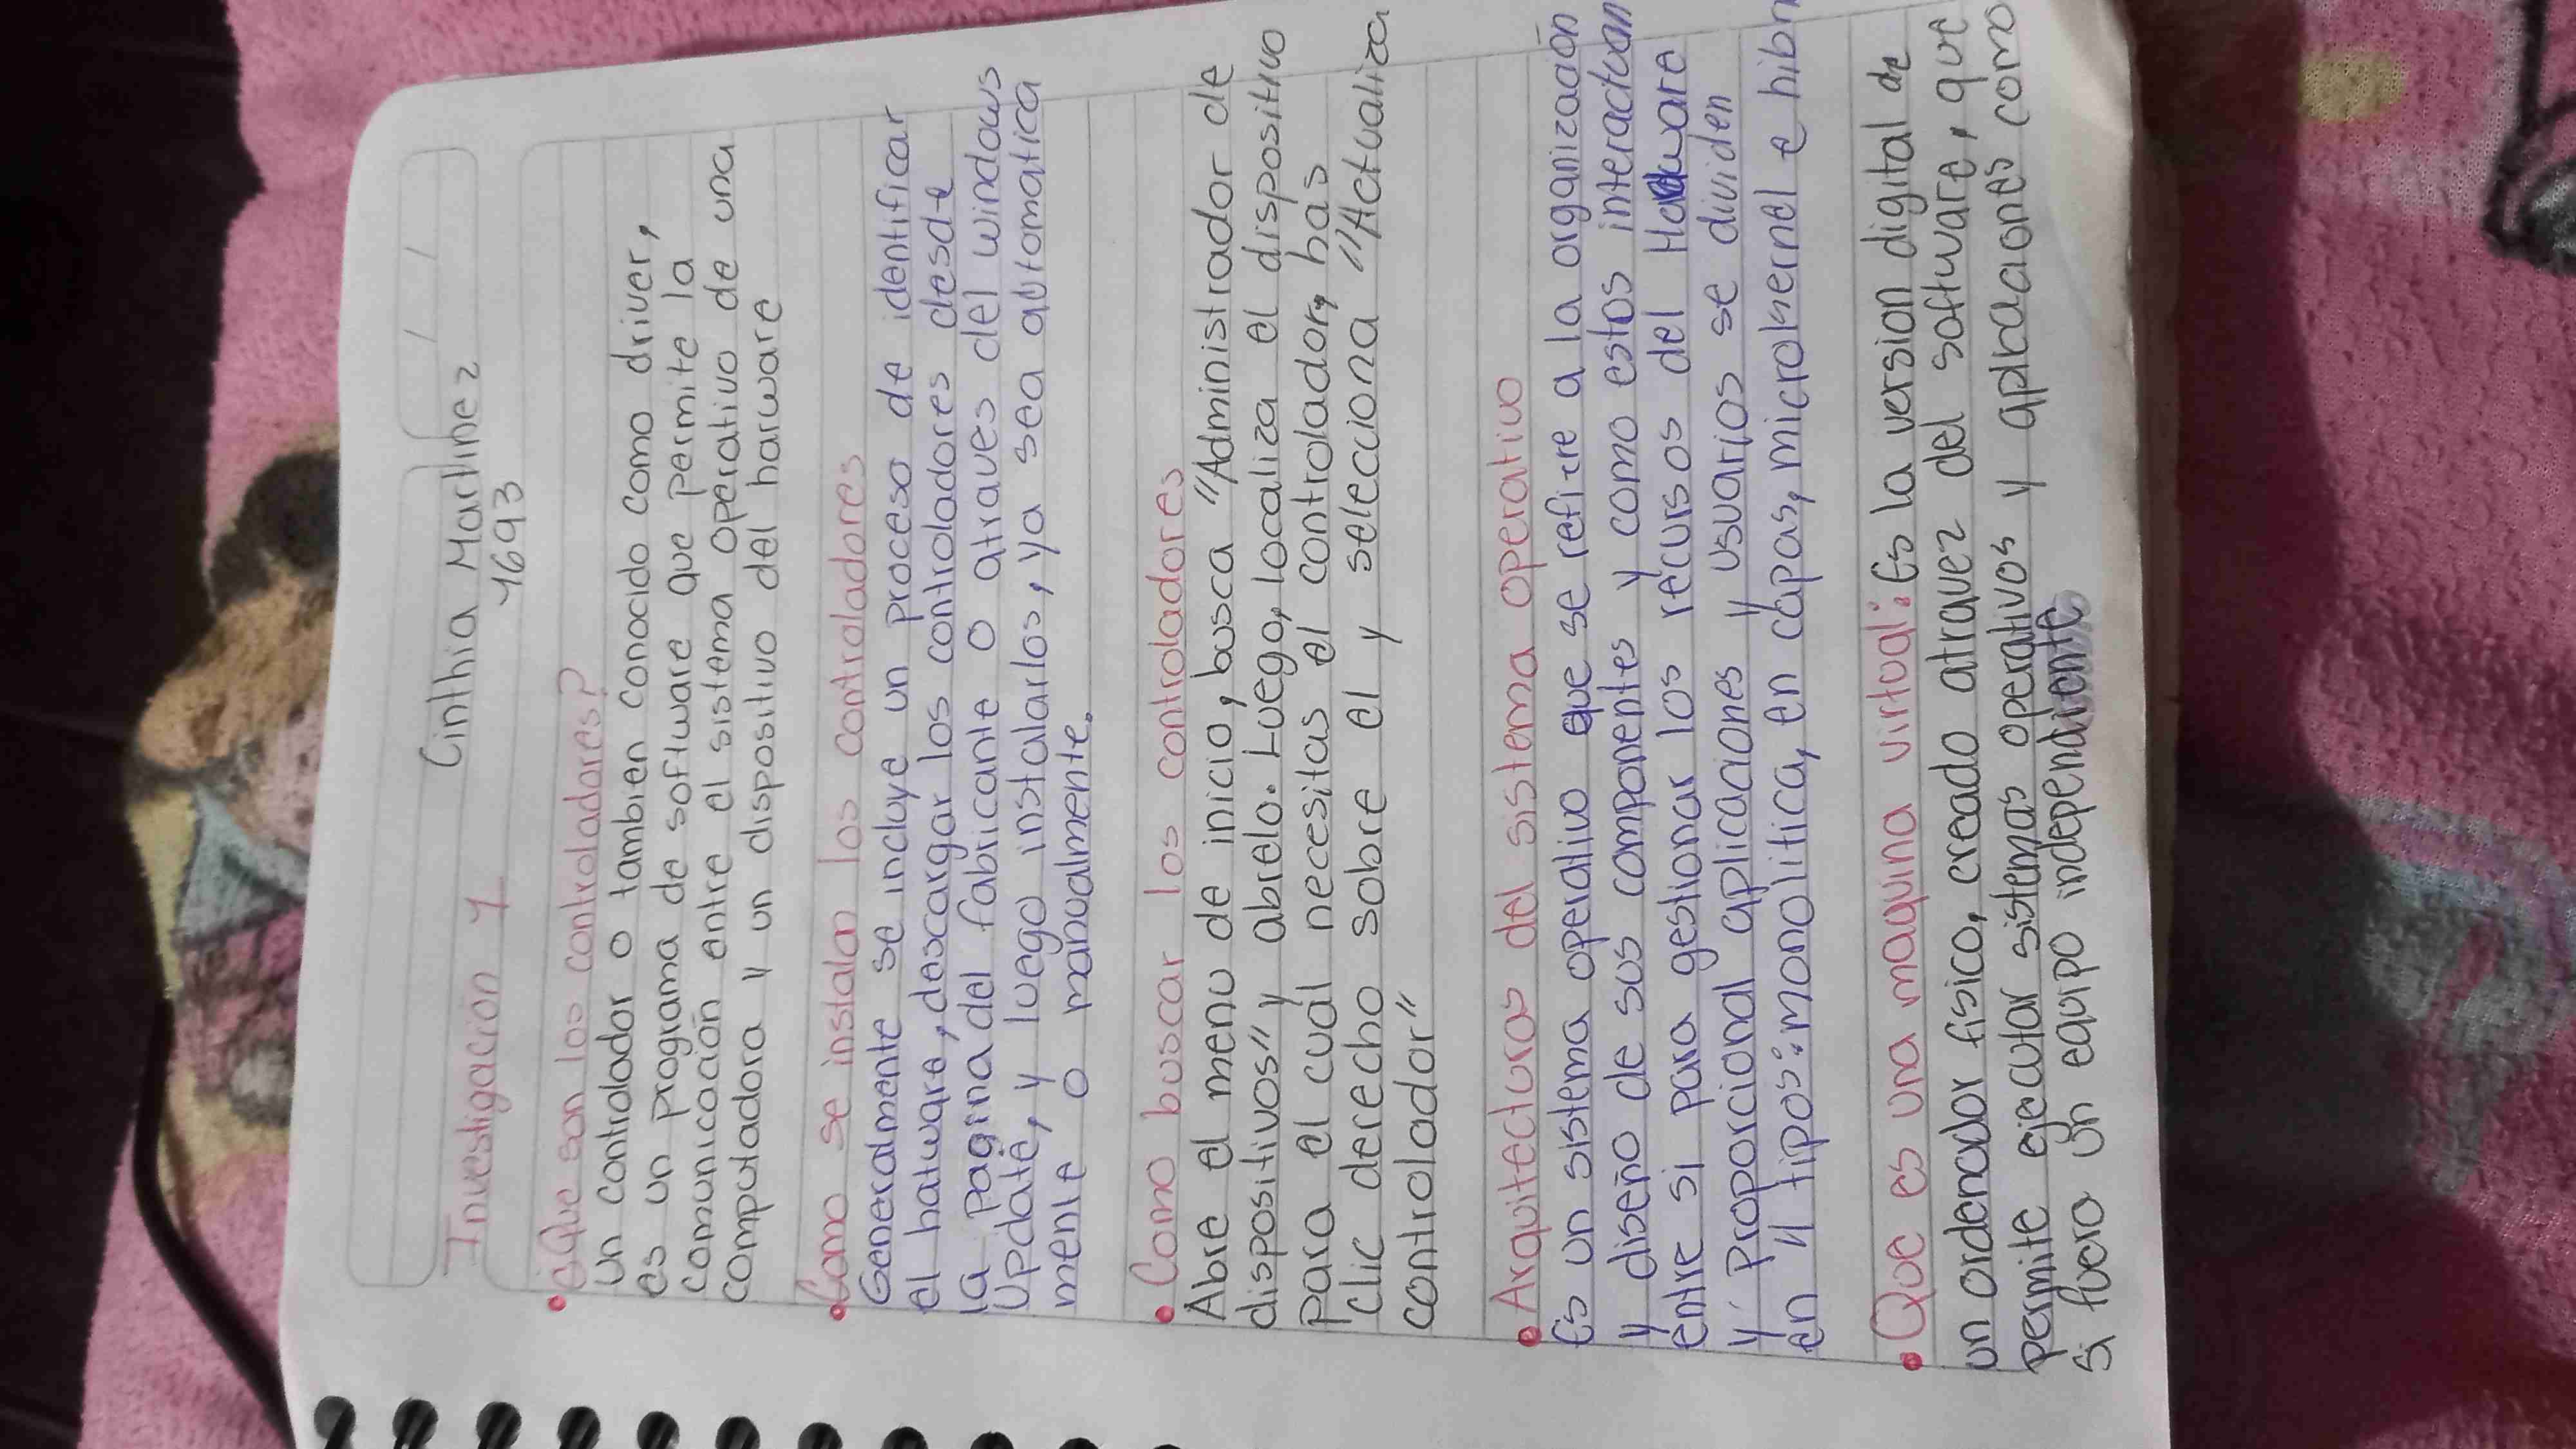 Cinthia Martinez
Investigacion 1 1693
• ¿Que son los controladores?
Un controlador o tambien conocido como driver,
es un programa de software que permite la
comunicación entre el sistema operativo de una
computadora y un dispositivo del harware
• Como se instalan los controladores
Generalmente se incluye un proceso de identificar
el hatware, descargar los controladores desde
la pagina del fabricante o atraves del windows
Update, y luego instalarlos, ya sea automatica
mente o manualmente.
• Como buscar los controladores
Abre el menu de inicio, busca "Administrador de
dispositivos" y abrelo. Luego, localiza el dispositivo
para el cual necesitas el controlador, has
clic derecho sobre el y selecciona "Actualiza
controlador"
• Arquitecturas del sistema operativo
Es un sistema operativo que se refire a la organización
y diseño de sus componentes y como estos interactuan
entre si para gestionar los recursos del Hardware
y Proporcional aplicaciones y usuarios se dividen
en 4 tipos: monolitica, en capas, microkernel e hibri
• Que es una maquina virtual: Es la version digital de
un ordenador fisico, creado atravez del software, que
permite ejecutar sistemas operativos y aplicaciones como
si fuera un equipo independiente